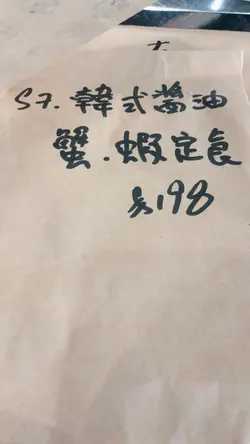 S7. 韓式醬油
蟹.蝦定食
$198